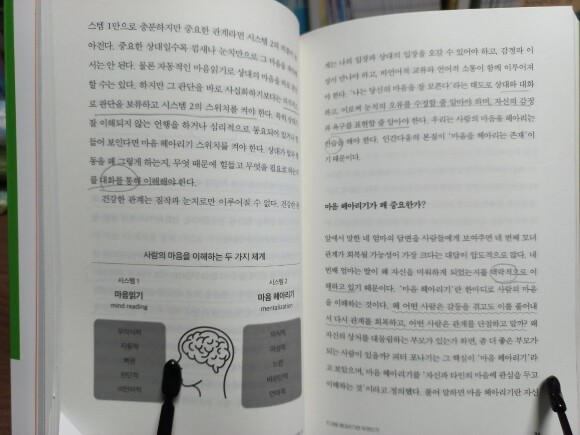 스템 1만으로 충분하지만 중요한 관계라면 시스템 2의
아진다. 중요한 상대일수록 낌새나 눈치만으로 그 마음을
서는 안 된다. 물론 자동적인 마음읽기로 상대의 마음을 바로
할 수는 있다. 하지만 그 판단을 바로 사실화하기보다는
로 판단을 보류하고 시스템 2의 스위치를 켜야 한다.
잘 이해되지 않는 언행을 하거나 심리적으로 동요되어 있거나
들어 보인다면 마음 헤아리기 스위치를 켜야 한다. 상대가
동을 왜 그렇게 하는지, 무엇 때문에 힘들고 무엇을 필요로 하는지
를 대화를 통해 이해해야 한다.
건강한 관계는 짐작과 눈치로만 이루어질 수 없다. 건강한
사람의 마음을 이해하는 두 가지 체계
시스템 1
마음읽기
mind reading
무의식적
자동적
빠름
판단적
비언어적
시스템 2
마음 헤아리기
mentalization
의식적
이성적
느림
비판단적
언어적
계는 나의 입장과 상대의 입장을 오갈 수 있어야 하고, 감정과 이
성이 만나야 하고, 비언어적 교류와 언어적 소통이 함께 이루어져
야 한다. '나는 당신의 마음을 잘 모른다'라는 태도로 상대와 대화
하고, 이로써 눈치의 오류를 수정할 줄 알아야 하며, 자신의 감정
과 욕구를 표현할 줄 알아야 한다. 우리는 사람의 마음을 헤아리는
연습을 해야 한다. 인간다움의 본질이 '마음을 헤아리는 존재'이
기 때문이다.
마음 헤아리기가 왜 중요한가?
앞에서 말한 네 엄마의 답변을 사람들에게 보여주면 네 번째 모녀
관계가 회복될 가능성이 가장 크다는 대답이 압도적으로 많다. 네
번째 엄마는 딸이 왜 자신을 미워하게 되었는지를 맥락적으로 이
해하고 있기 때문이다. '마음 헤아리기'란 한마디로 사람의 마음
을 이해하는 것이다. 왜 어떤 사람은 갈등을 겪고도 이를 풀어내
서 다시 관계를 회복하고, 어떤 사람은 관계를 단절하고 말까? 왜
자신의 상처를 대물림하는 부모가 있는가 하면, 좀 더 좋은 부모가
되는 사람이 있을까? 피터 포나기는 그 핵심이 '마음 헤아리기'라
고 보았으며, 마음 헤아리기를 '자신과 타인의 마음에 관심을 두고
이해하는 것'이라고 정의했다. 풀어 말하면 마음 헤아리기란 자신